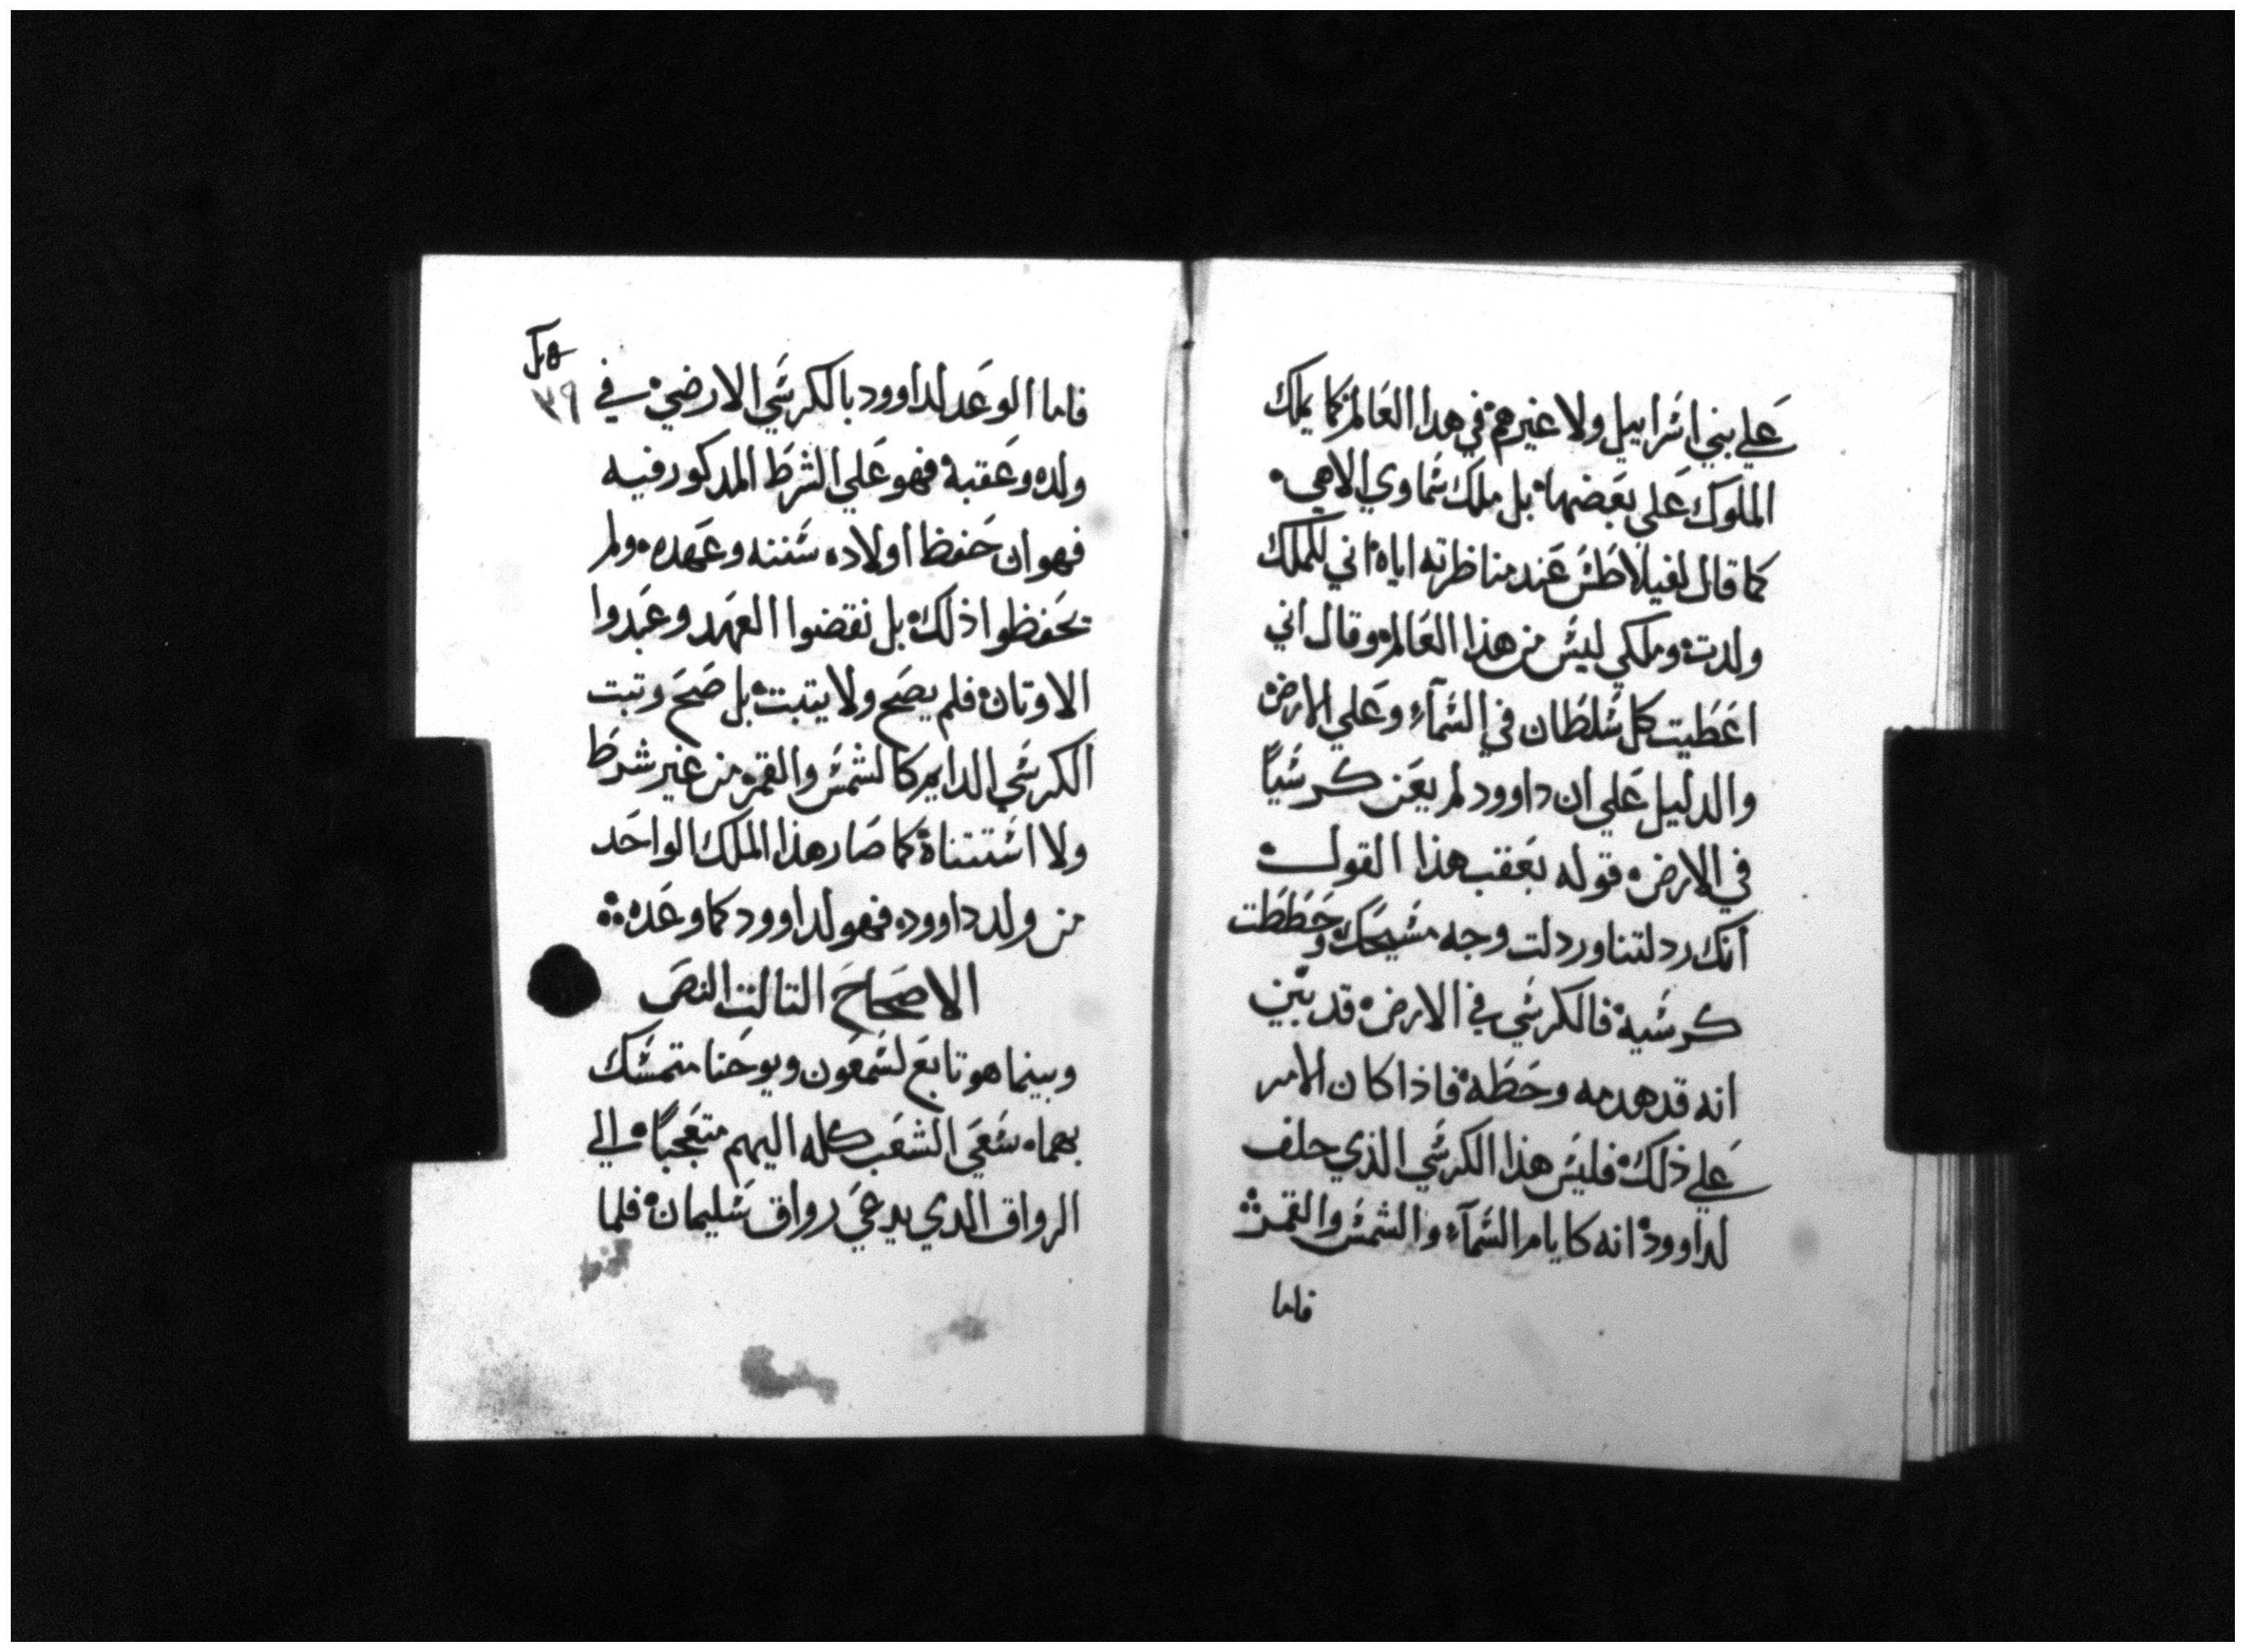 علي بني اسرابيل ولا غيرهم في هدا العالم كما يملك
الملوك علي بعضها بل ملك سماوي الاهي
كما قال لفيلاطس عند مناظرته اياه اني للملك
ولدت وملكي ليس من هذا العالم وقال اني
اعطيت كل سلطان في السمآء وعلي الارض
والدليل علي ان داوود لم يعن كرسياً
في الارض قوله بعقب هذا القول
انك ردلتنا وردلت وجه مسيحك وحططت
كرسيه فالكرسي في الارض قد بين
انه قد هدمه وحطه فاذا كان الامر
علي ذلك فليس هذا الكرسي الذي حلف
لداوود انه كايام السمآء والشمس والقمر
فاما
٣٩
فاما الوعد لداوود بالكرسي الارضي في
ولده وعقبه فهو علي الشرط المدكور فيه
فهو ان حفظ اولاده سننه وعهده ولم
يحفظوا ذلك بل نقضوا العهد وعبدوا
الاوتان فلم يصح ولا يتبت بل صح وتبت
الكرسي الدايم كالشمس والقمر من غير شرط
ولا استتناة كما صار هذا الملك الواحد
من ولد داوود فهو لداوود كما وعده
الاصحاح التالت النص
وبينما هو تابع لسمعون ويوحنا متمسك
بهما سعي الشعب كله اليهم متعجباً الي
الرواق الدي يدعي رواق سليمان فلما